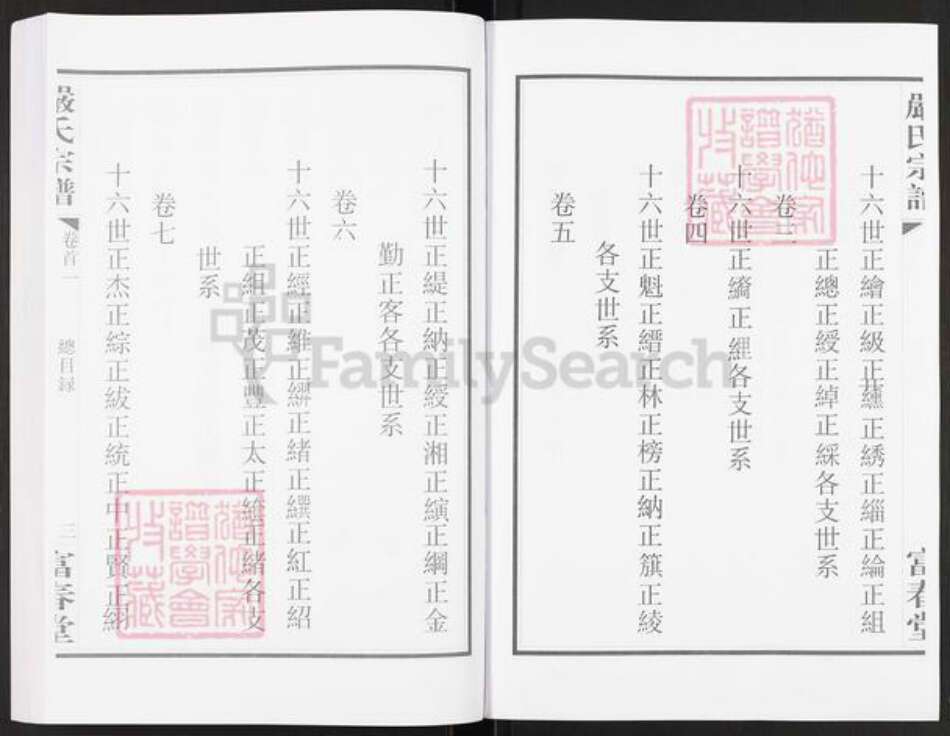 嚴氏宗譜
富春堂
十六世正繪正級正蘊正綉正緇正綸正組
正總正綬正綽正綵各支世系
卷三
十六世正縎正緾各支世系
卷四
十六世正魁正縉正林正榜正納正旗正綾
各支世系
卷五
十六世正緹正納正綬正湘正縯正綱正金
勤正客各支世系
卷六
十六世正經正維正繻正緒正繏正紅正紹
正組正茂正豐正太正維正緒各支
世系
卷七
十六世正杰正綜正紱正統正中正賢正翝
嚴氏宗譜
卷首一
總目録
三
富春堂
FamilySearch